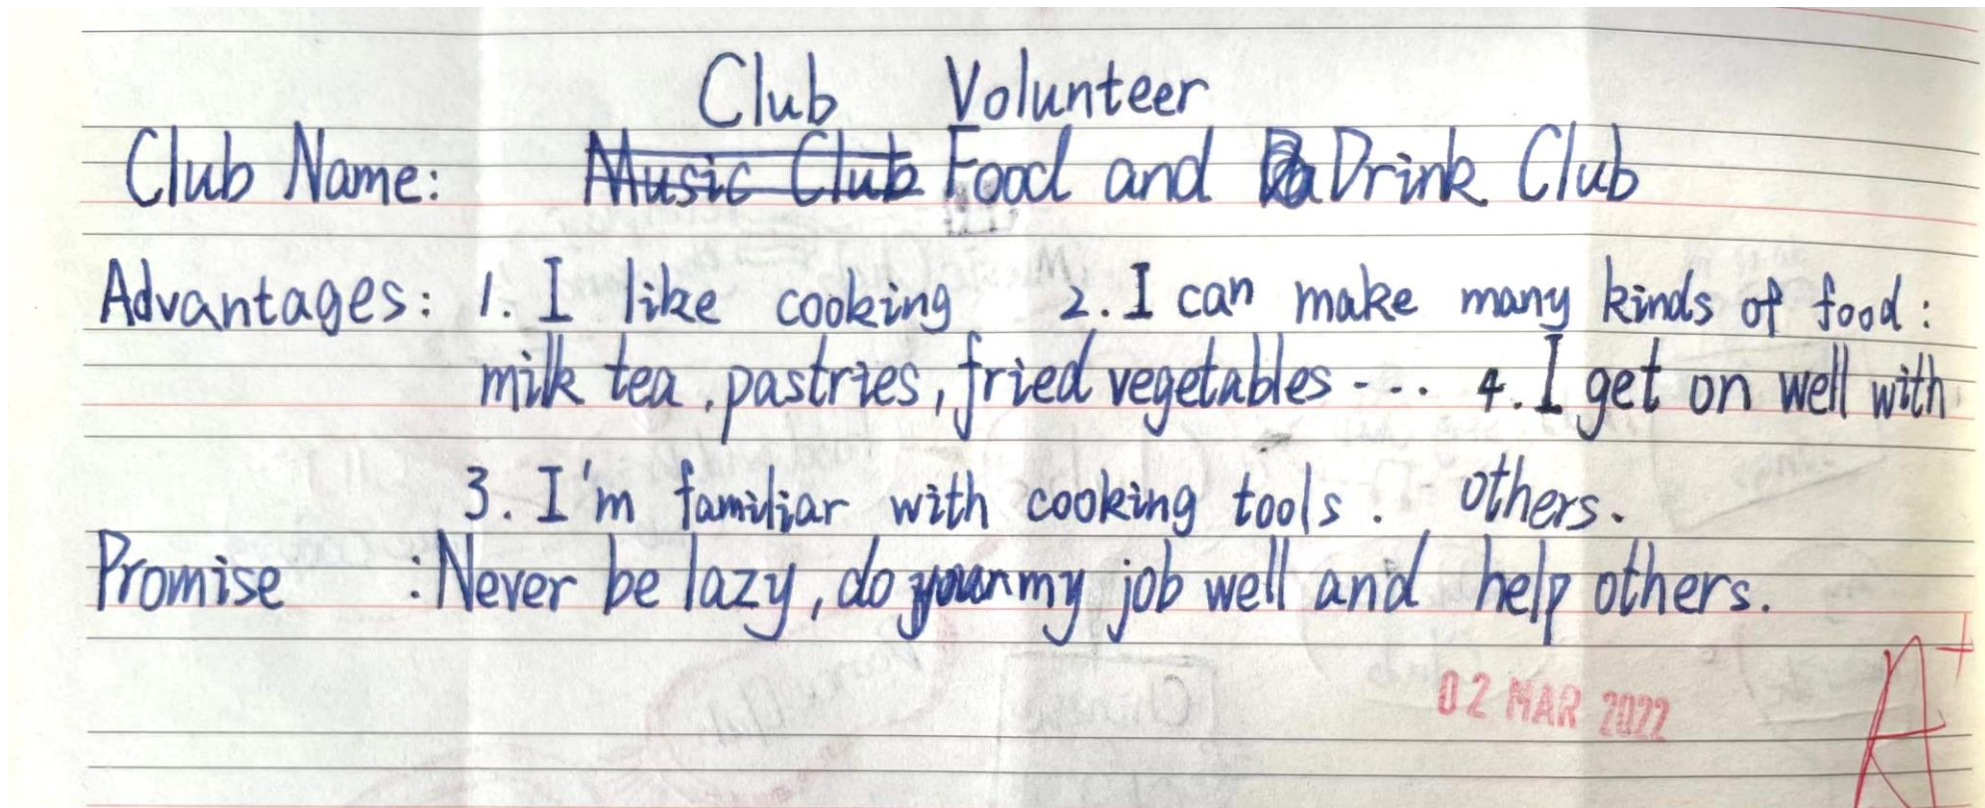 Club Volunteer
Club Name: Music Club Food and Drink Club
Advantages: 1. I like cooking 2. I can make many kinds of food:
milk tea, pastries, fried vegetables - - - 4. I get on well with
3. I'm familiar with cooking tools. others.
Promise : Never be lazy, do my job well and help others.
02 MAR 2022
A+